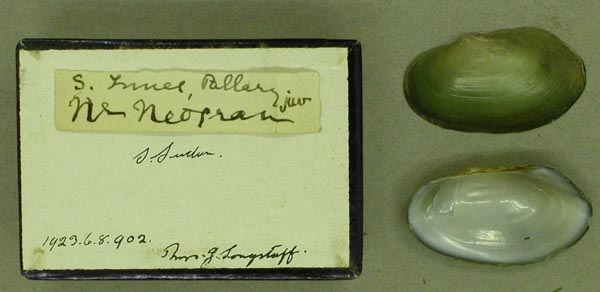 S. Innesi, Pallary juv
Nr Neogran
S. Sudan.
1923.6.8.902.
Mrs. J. Longstaff.